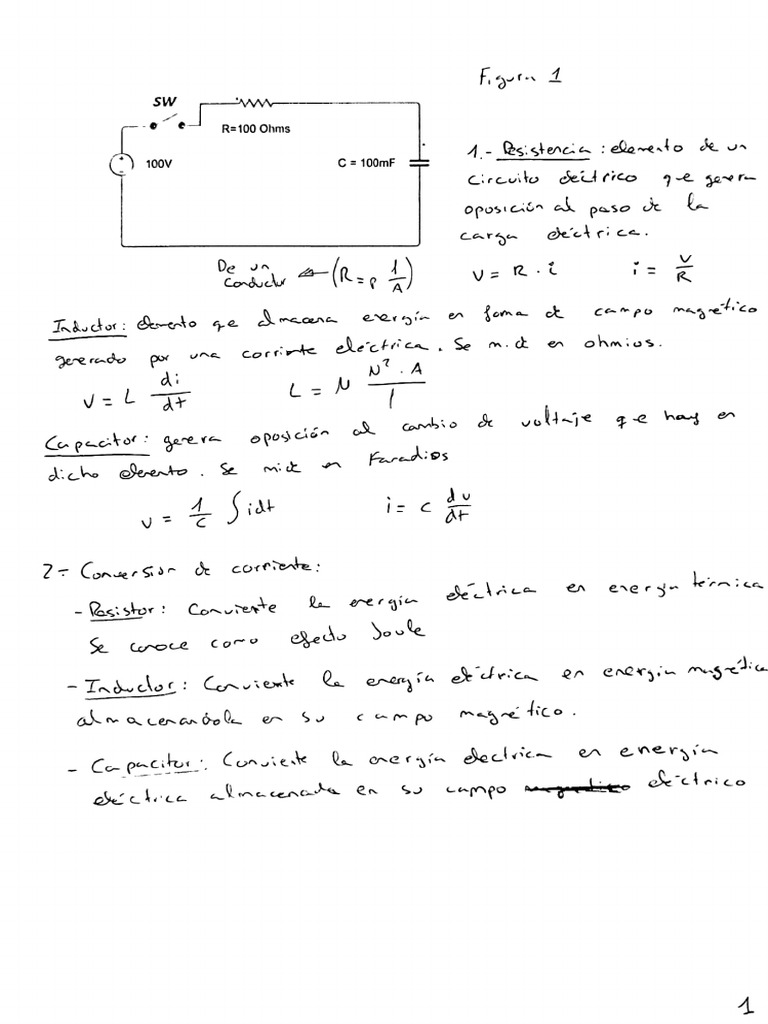 Figura 1
SW
R=100 Ohms
100V
C = 100mF
1.- Resistencia : elemento de un
circuito eléctrico que genera
oposición al paso de la
carga eléctrica.
De un
conductor ← (R = ρ l/A)
V = R · i    i = V/R
Inductor: elemento que almacena energía en forma de campo magnético
generado por una corriente eléctrica. Se mide en ohmios.
V = L di/dt    L = N N² · A / l
Capacitor: genera oposición al cambio de voltaje que hay en
dicho elemento. Se mide en Faradios
v = 1/C ∫ i dt    i = C dv/dt
2.- Conversión de corriente:
- Resistor: Conviente la energía eléctrica en energía térmica
Se conoce como efecto Joule
- Inductor: Conviente la energía eléctrica en energía magnética
almacenandola en su campo magnético.
- Capacitor: Conviente la energía electrica en energía
eléctrica almacenada en su campo eléctrico
1